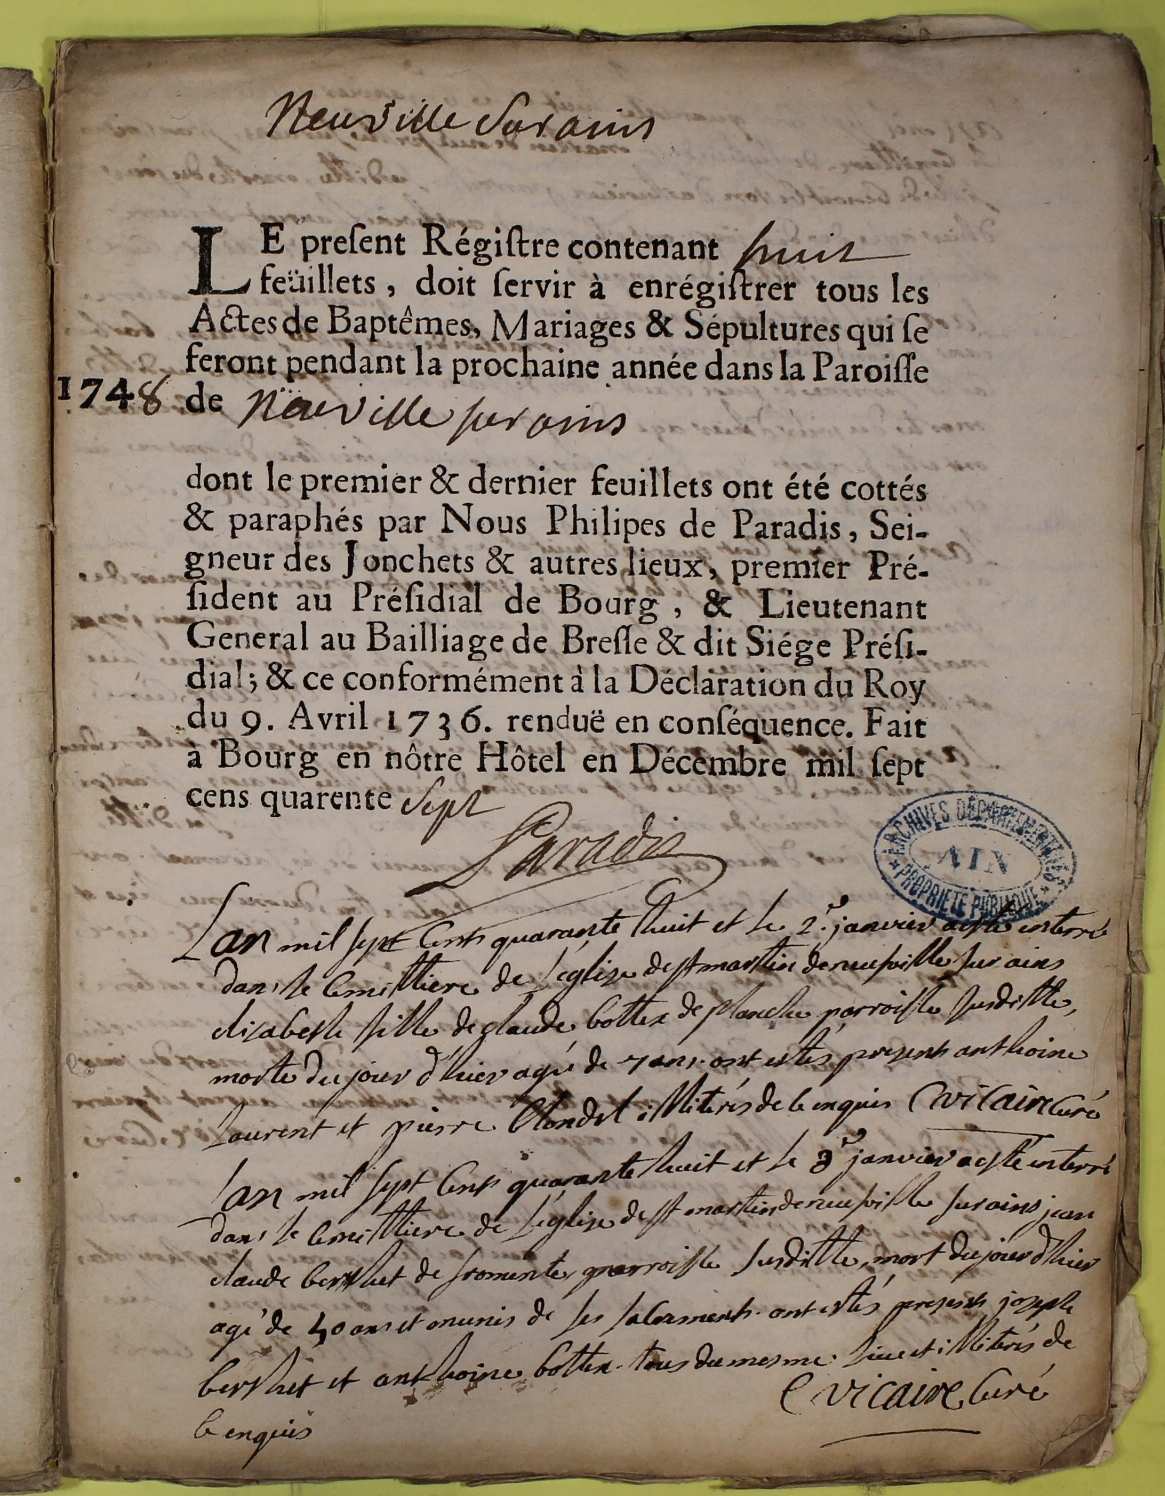 Neuville Sur ains
LE preſent Régiſtre contenant huit
feüillets, doit ſervir à enrégiſtrer tous les
Actes de Baptêmes, Mariages & Sépultures qui ſe
feront pendant la prochaine année dans la Paroiſſe
1748 de Neuville sur ains
dont le premier & dernier feuillets ont été cottés
& paraphés par Nous Philipes de Paradis, Sei-
gneur des Jonchets & autres lieux, premier Pré-
ſident au Préſidial de Bourg, & Lieutenant
General au Bailliage de Breſſe & dit Siége Préſi-
dial; & ce conformément à la Déclaration du Roy
du 9. Avril 1736. renduë en conſéquence. Fait
à Bourg en nôtre Hôtel en Décembre mil ſept
cens quarente Sept
Paradis
ARCHIVES DÉPARTEMENTALES
AIN
PROPRIÉTÉ PUBLIQUE
Lan mil sept Cents quarante huit et le 2r janvier a esté enterré
dans le Cemittiere de l'église de st martin de neufville sur ains
elizabeth fille de glaude bottex de planche parroisse susditte,
morte du jour d'hier agé de 7 ans. ont estés presents anthoine
Laurent et pierre blondel illiterés de ce enquis C vicaire Curé
Lan mil sept Cents quarante huit et le 3r janvier a esté enterré
dans le Cemittiere de l'église de st martin de neufville sur ains jean
claude berthet de fromente parroisse susditte, mort du jour d'hier
agé de 40 ans et munis de ses sacrements. ont estés presents joseph
berthet et anthoine bottex tous du mesme lieu et illiterés de
ce enquis C vicaire Curé